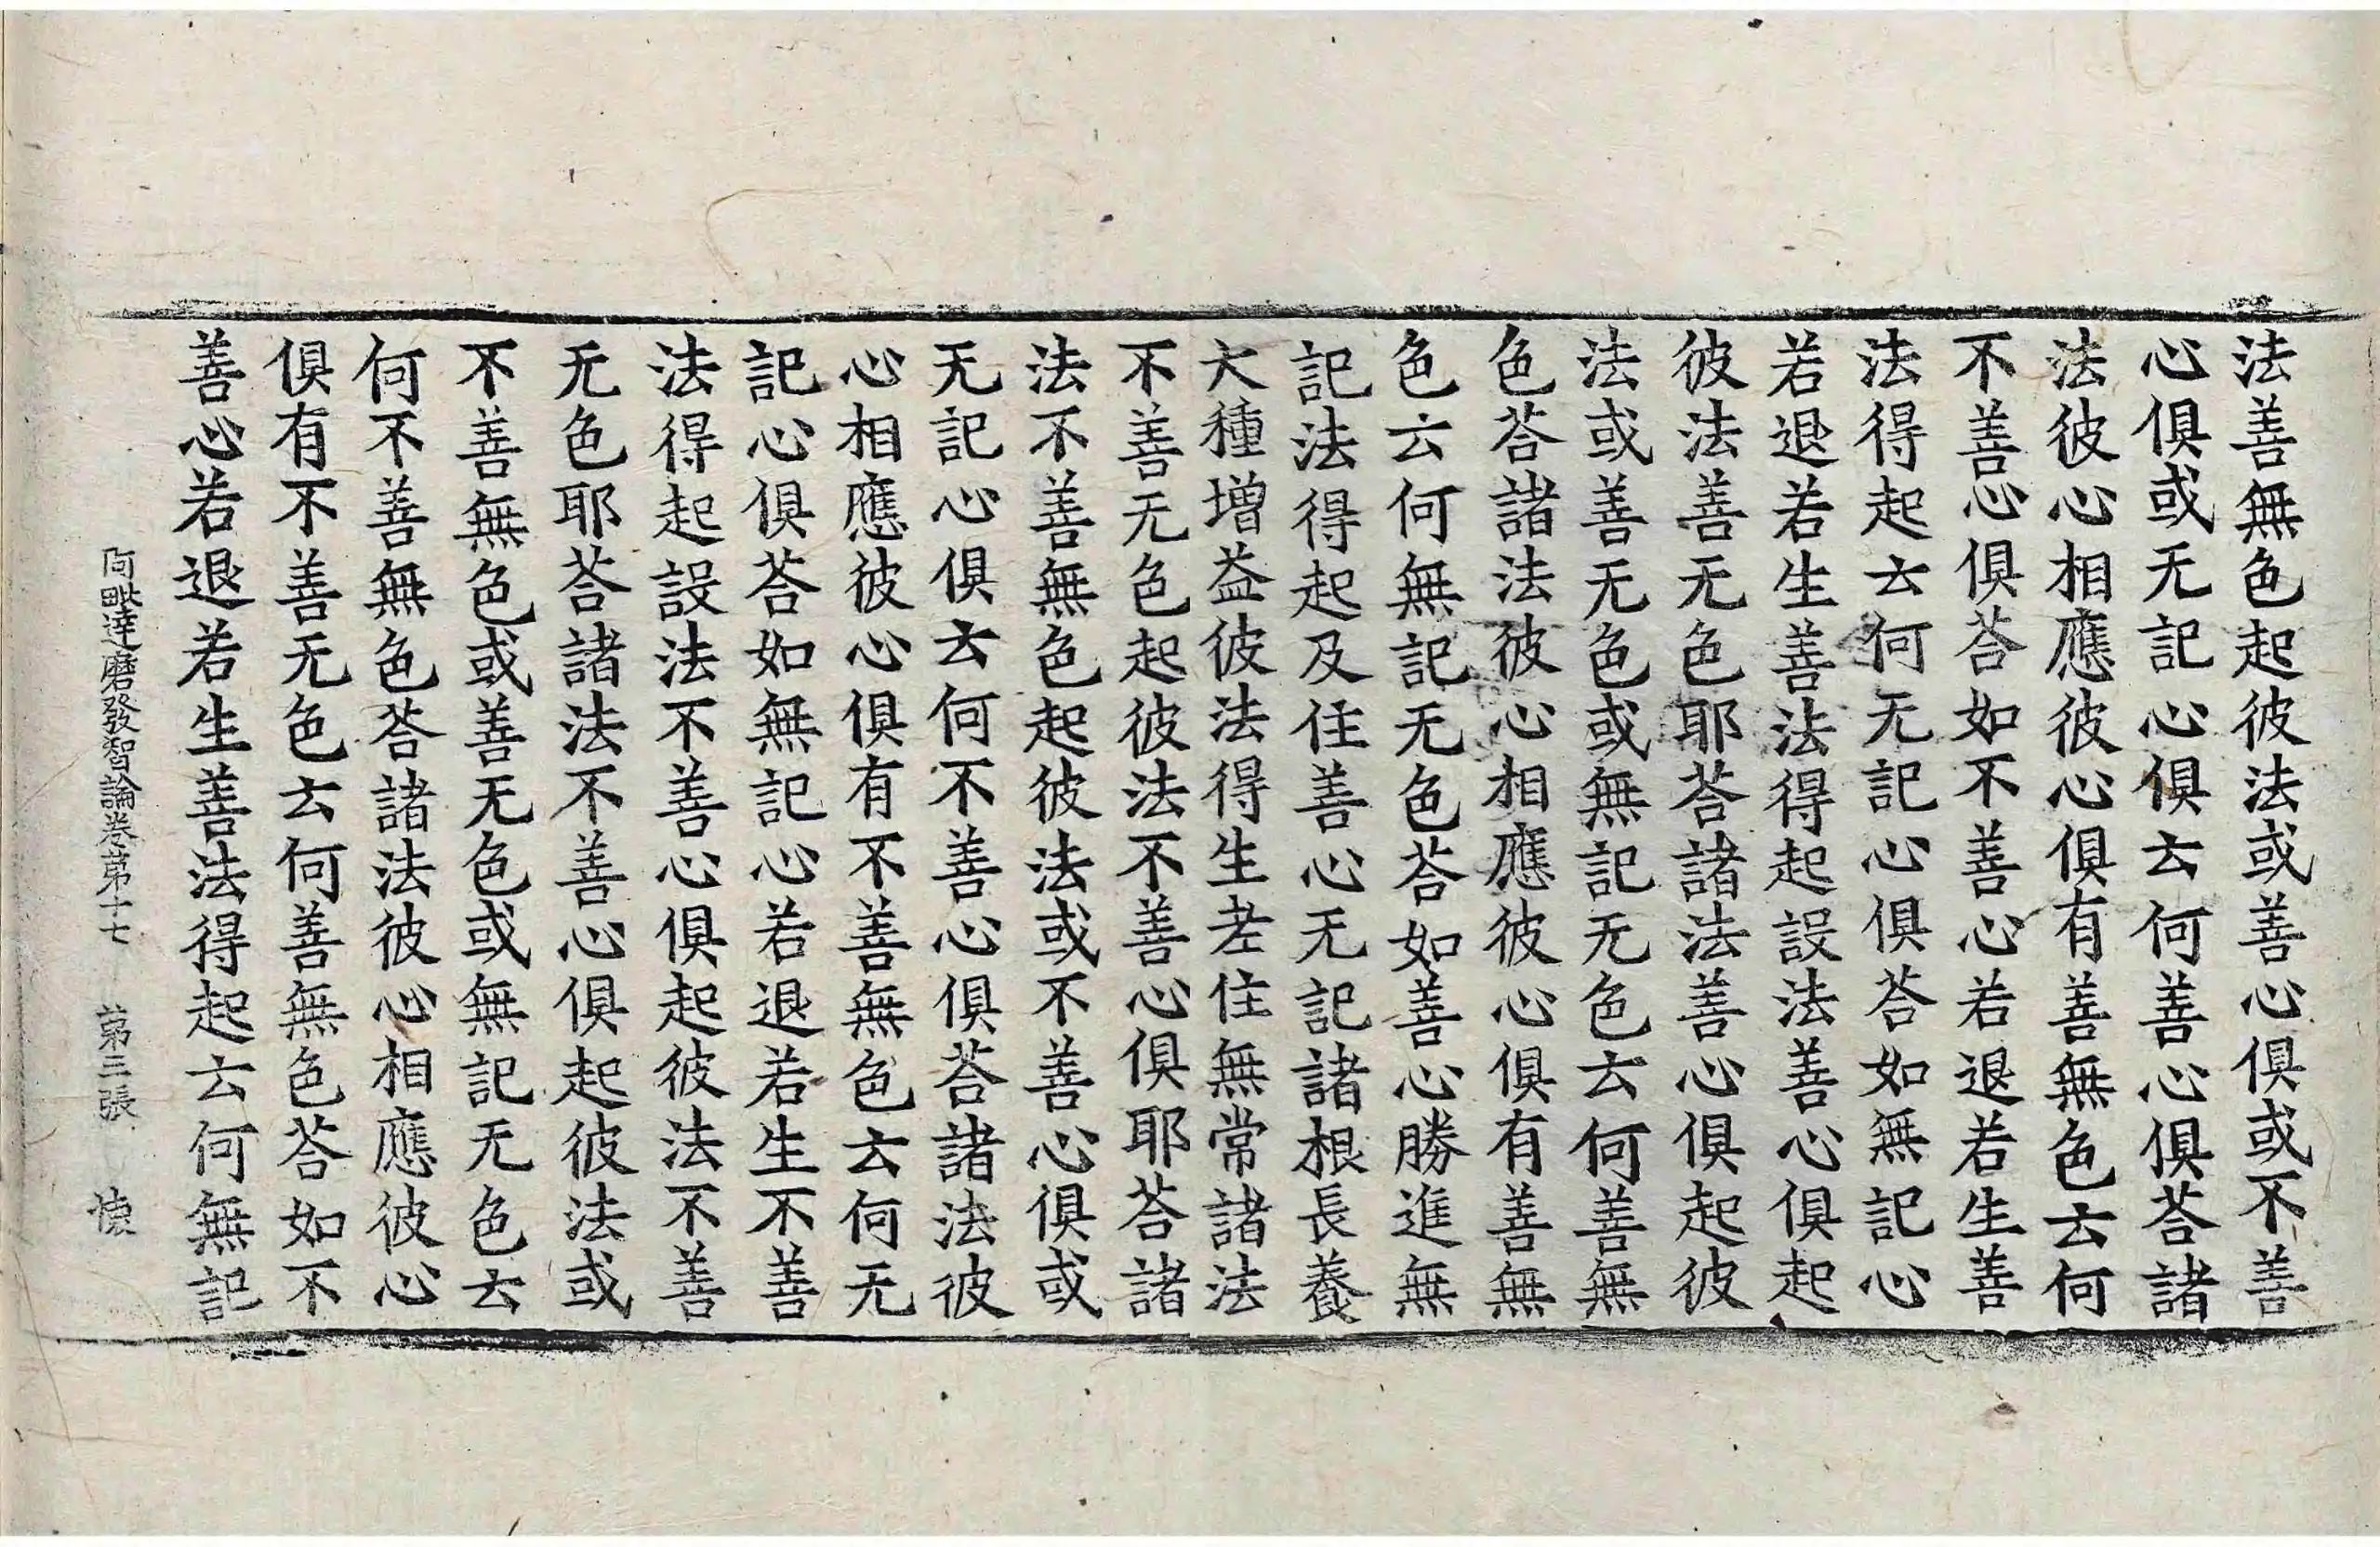 法善無色起彼法或善心俱或不善
心俱或无記心俱云何善心俱荅諸
法彼心相應彼心俱有善無色云何
不善心俱荅如不善心若退若生善
法得起云何无記心俱荅如無記心
若退若生善法得起設法善心俱起
彼法善无色耶荅諸法善心俱起彼
法或善无色或無記无色云何善無
色荅諸法彼心相應彼心俱有善無
色云何無記无色荅如善心勝進無
記法得起及住善心无記諸根長養
大種增益彼法得生老住無常諸法
不善无色起彼法不善心俱耶荅諸
法不善無色起彼法或不善心俱或
无記心俱云何不善心俱荅諸法彼
心相應彼心俱有不善無色云何无
記心俱荅如無記心若退若生不善
法得起設法不善心俱起彼法不善
无色耶荅諸法不善心俱起彼法或
不善無色或善无色或無記无色云
何不善無色荅諸法彼心相應彼心
俱有不善无色云何善無色荅如不
善心若退若生善法得起云何無記
阿毗達磨發智論卷第十七 第三張 懐